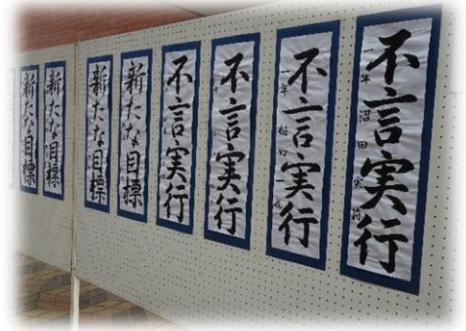 不言実行
一年 沼田実莉
不言実行
一年
不言実行
不言実行
新たな目標
新たな目標
新たな目標
新たな目標